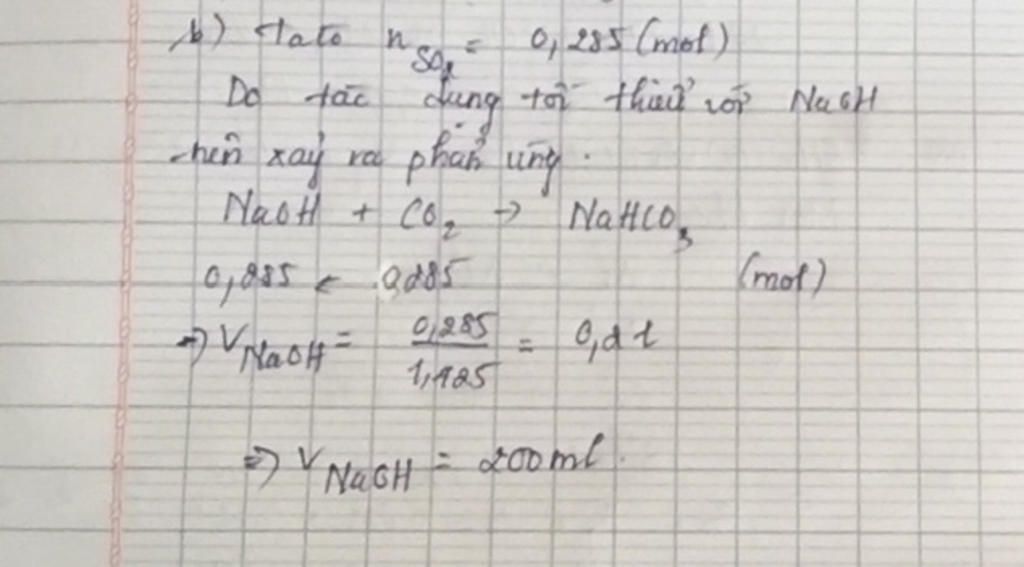 b) ta có n_SO₂ = 0,285 (mol)
Do tác dụng tối thiểu với NaOH
nên xảy ra phản ứng.
NaOH + CO₂ → NaHCO₃
0,285 ← 0,285 (mol)
⇒ V_NaOH = 0,285 / 1,425 = 0,2 l
⇒ V_NaOH = 200 ml.